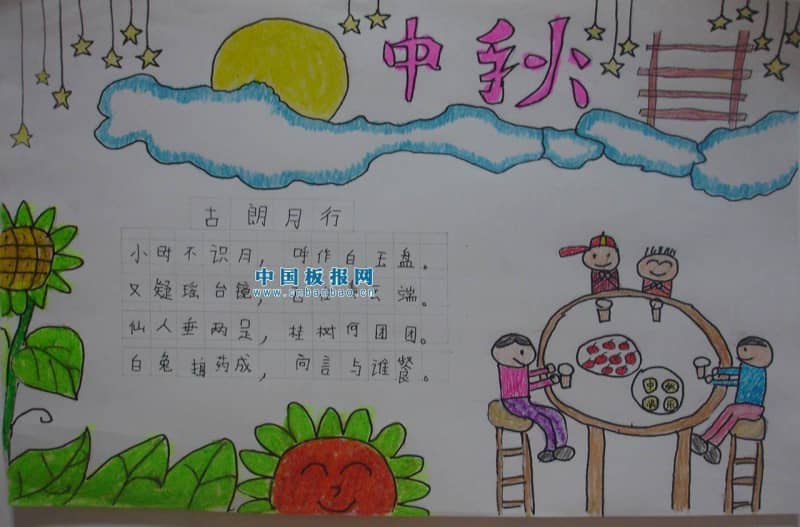 中秋
古朗月行
小时不识月，呼作白玉盘。
又疑瑶台镜，云端。
中国板报网
www.cnbanbao.cn
仙人垂两足，桂树何团团。
白兔捣药成，问言与谁餐。
中秋